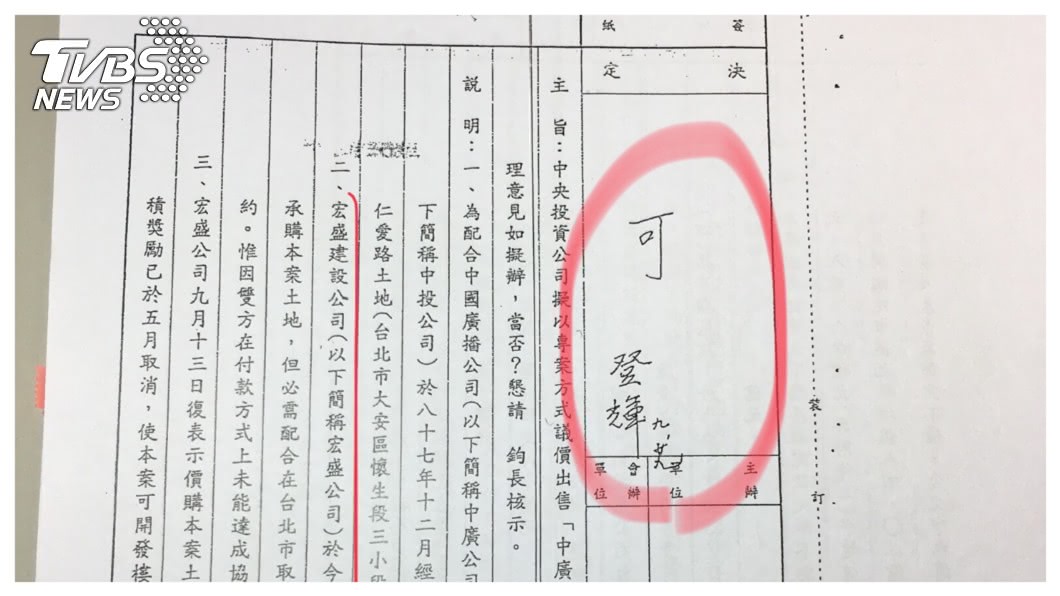 TVBS
NEWS
簽
紙
決
定
可
登輝
主辦
單位
會辦
單位
裝
訂
主　旨：中央投資公司擬以專案方式議價出售「中廣
理意見如擬辦，當否？懇請　鈞長核示。
說　明：一、為配合中國廣播公司（以下簡稱中廣公司
下簡稱中投公司）於八十七年十二月經
仁愛路土地（台北市大安區懷生段三小段
二、宏盛建設公司（以下簡稱宏盛公司）於今
承購本案土地，但必需配合在台北市取
約。惟因雙方在付款方式上未能達成協
三、宏盛公司九月十三日復表示價購本案土
積獎勵已於五月取消，使本案可開發樓